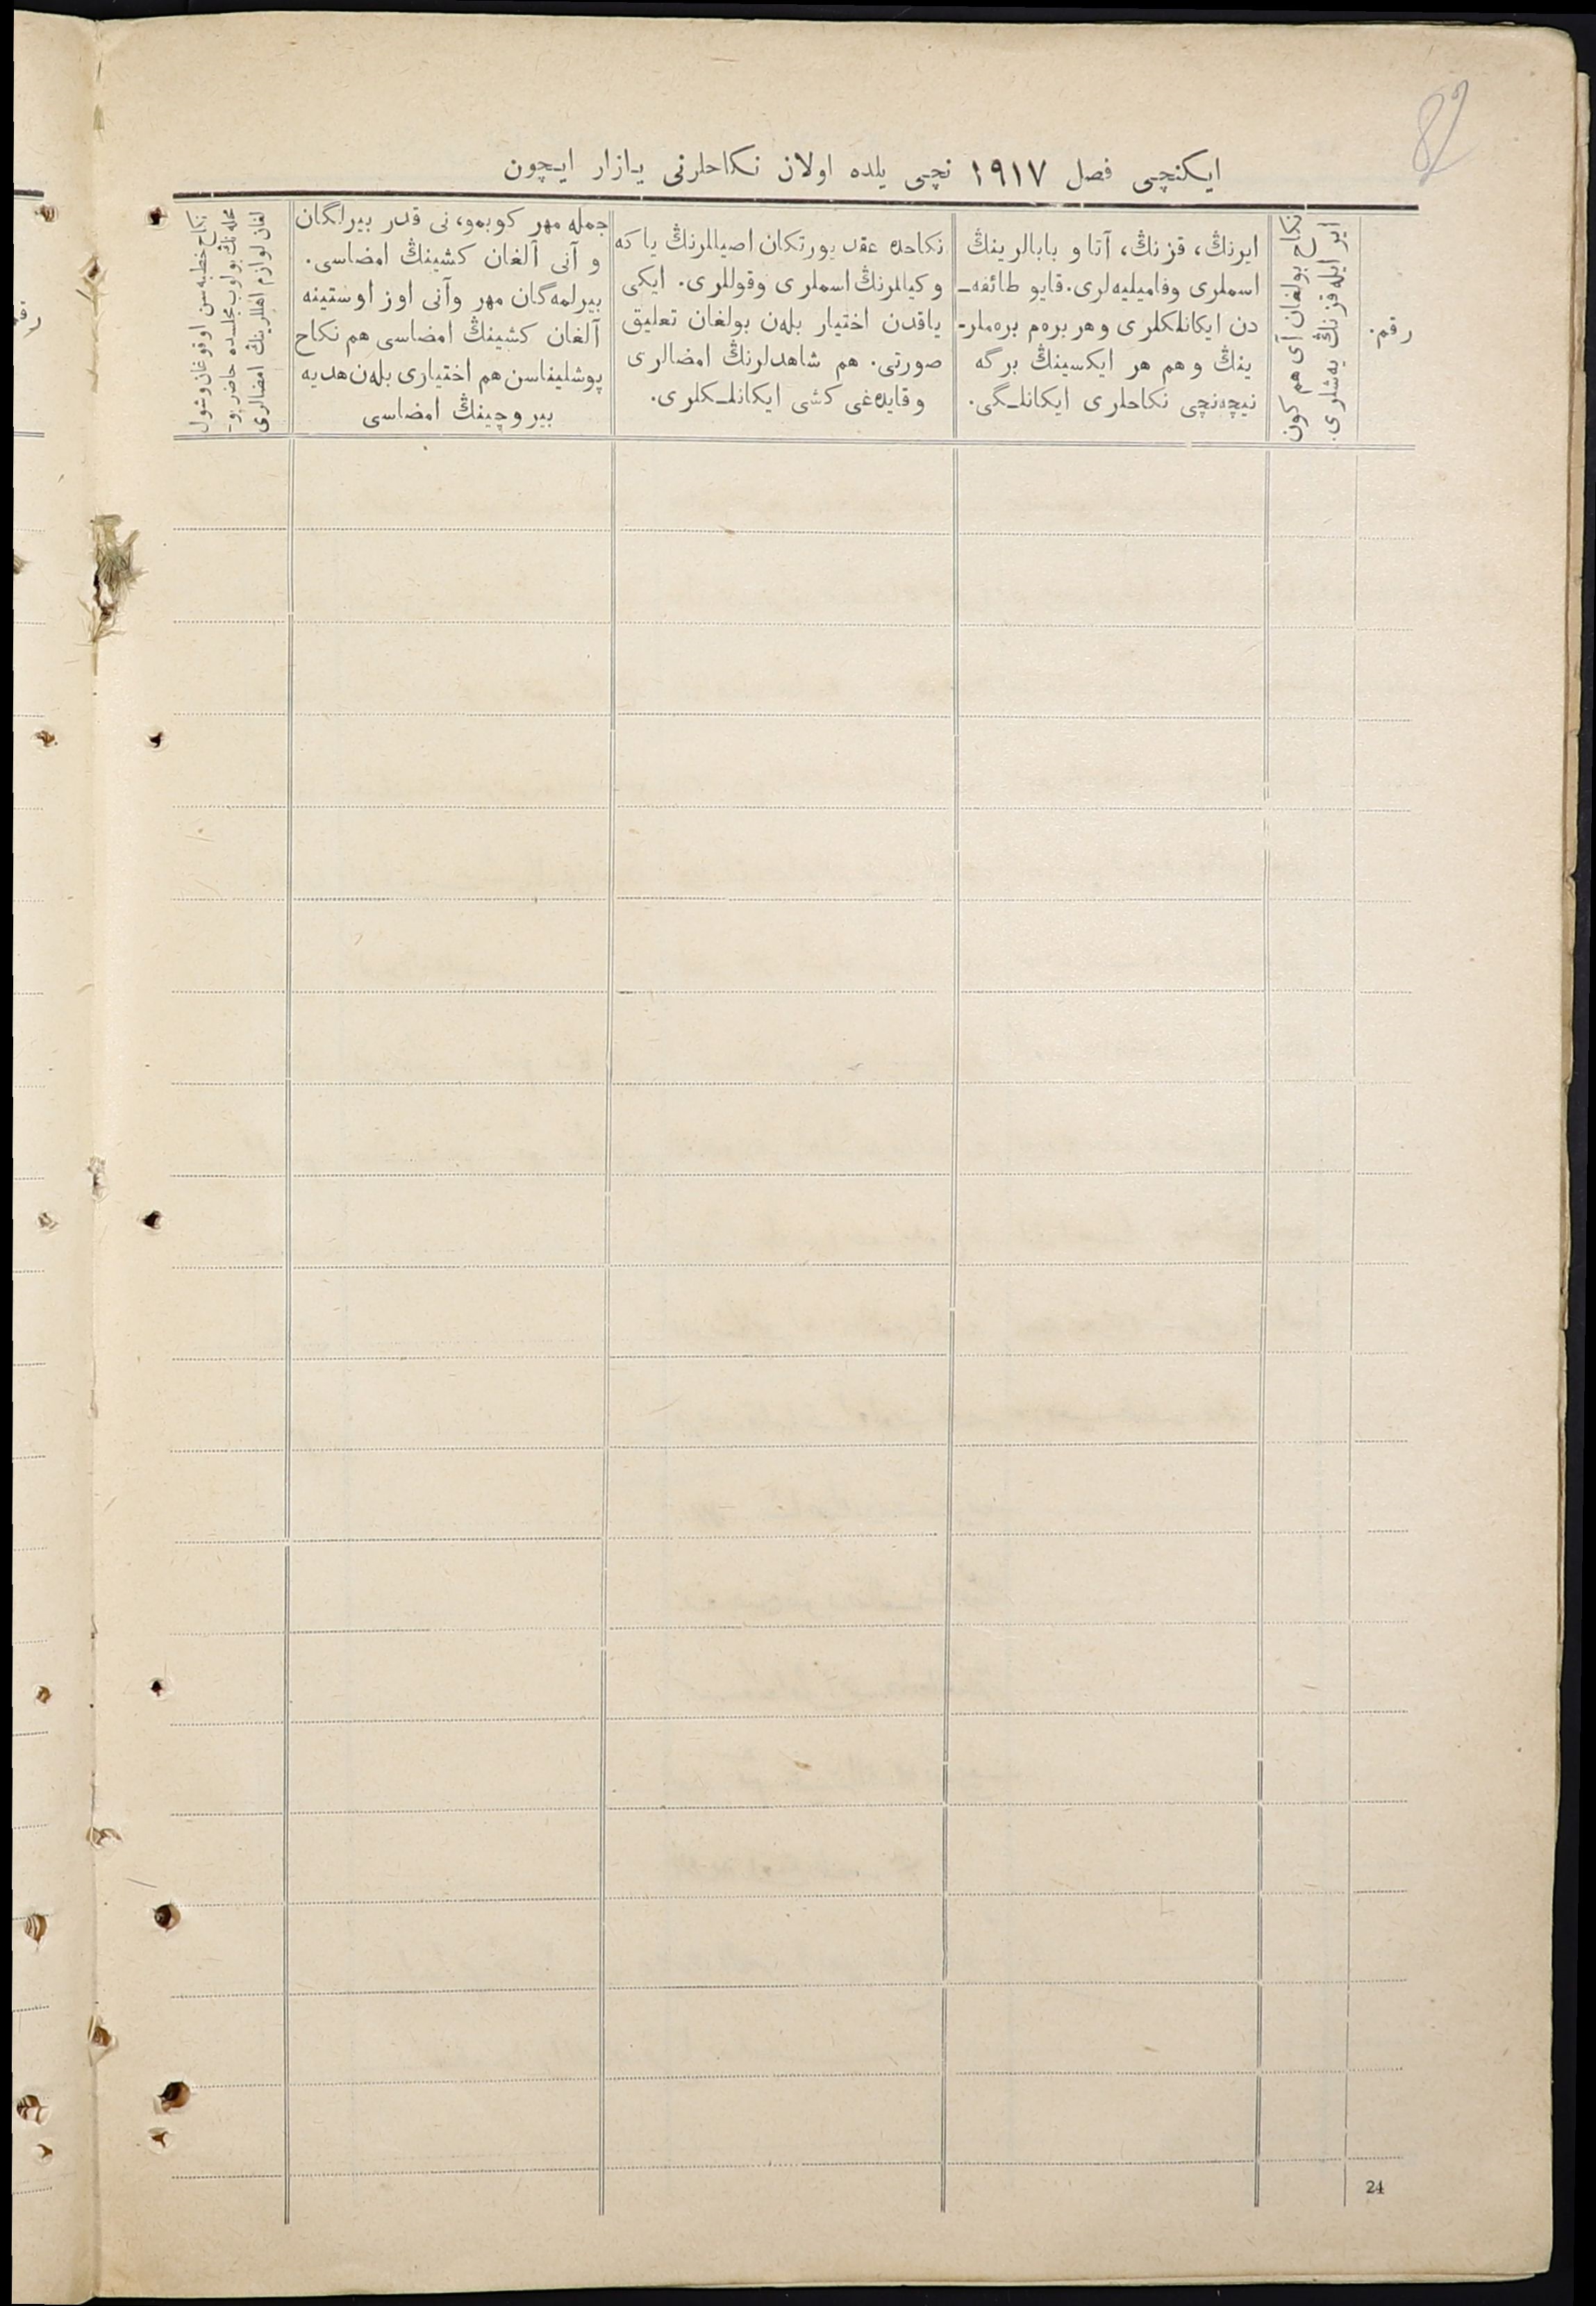 82
ایکنچی فصل ١٩١٧ نچی یلده اولان نکاحلرنی یازار ایچون
رقم.
ایر ایله قزنڭ یه‌شلری.
نکاح بولغان آی هم کون
ایرنڭ، قزنڭ، آتا و بابالرینڭ
اسملری وفامیلیه‌لری. قایو طائفه‌ـ
دن ایکانلکلری وهر بره‌م بره‌ملر-
ینڭ وهم هر ایکسینڭ برگه
نیچه‌نچی نکاحلری ایکانلـگی.
نکاحده عقد یورتکان اصیاللرنڭ یاکه
وکیاللرنڭ اسملری وقوللری. ایکی
یاقدن اختیار بله‌ن بولغان تعلیق
صورتی. هم شاهدلرنڭ امضالری
وقایده‌غی کشی ایکانلـکلری.
جمله مهر کوبمو، نی قدر بیرلگان
و آنی آلغان کشینڭ امضاسی.
بیرلمه‌گان مهر وآنی اوز اوستینه
آلغان کشینڭ امضاسی هم نکاح
پوشلیناسن هم اختیاری بله‌ن هدیه
بیروچینڭ امضاسی
نکاح خطبه‌سن اوقوغان وشول
محله‌نڭ بولوب مجلسده حاضر بو-
لغان لوازم اهللرینڭ امضالری
24